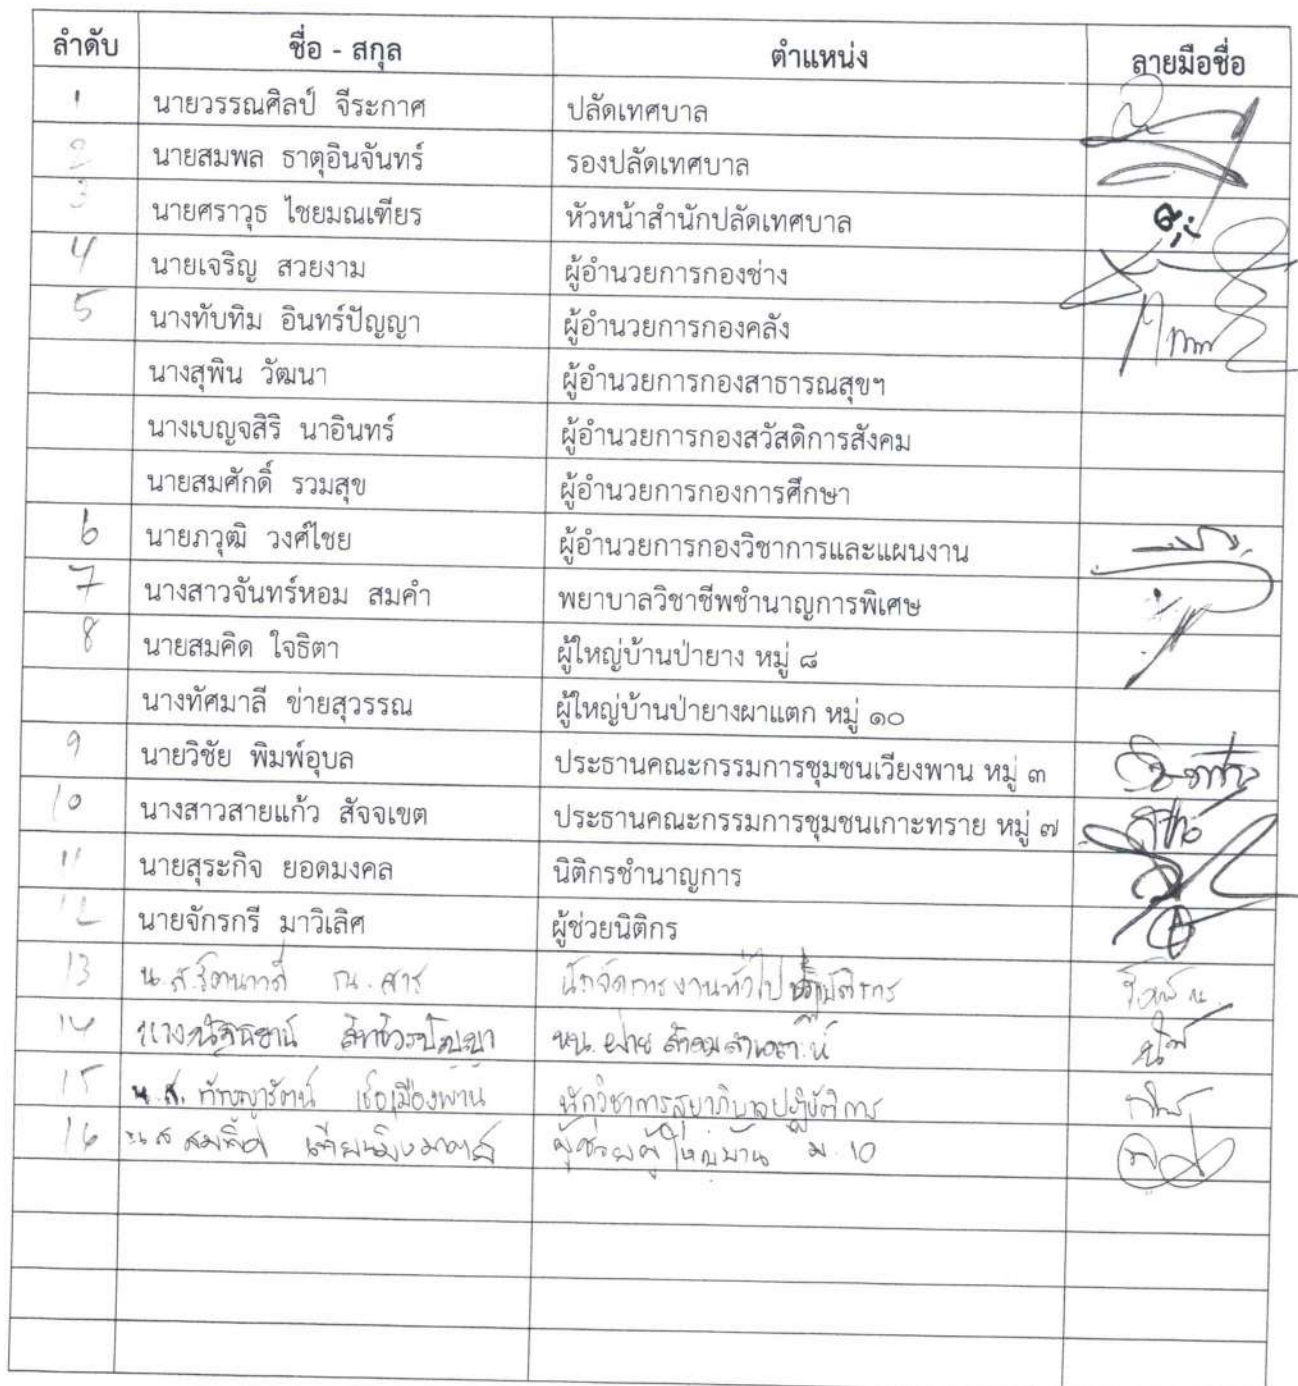 ลำดับ ชื่อ - สกุล ตำแหน่ง ลายมือชื่อ
1 นายวรรณศิลป์ จีระกาศ ปลัดเทศบาล
2 นายสมพล ธาตุอินจันทร์ รองปลัดเทศบาล
3 นายศราวุธ ไชยมณเฑียร หัวหน้าสำนักปลัดเทศบาล
4 นายเจริญ สวยงาม ผู้อำนวยการกองช่าง
5 นางทับทิม อินทร์ปัญญา ผู้อำนวยการกองคลัง
นางสุพิน วัฒนา ผู้อำนวยการกองสาธารณสุขฯ
นางเบญจสิริ นาอินทร์ ผู้อำนวยการกองสวัสดิการสังคม
นายสมศักดิ์ รวมสุข ผู้อำนวยการกองการศึกษา
6 นายภวุฒิ วงศ์ไชย ผู้อำนวยการกองวิชาการและแผนงาน
7 นางสาวจันทร์หอม สมคำ พยาบาลวิชาชีพชำนาญการพิเศษ
8 นายสมคิด ใจธิตา ผู้ใหญ่บ้านป่ายาง หมู่ ๘
นางทัศมาลี ข่ายสุวรรณ ผู้ใหญ่บ้านป่ายางผาแตก หมู่ ๑๐
9 นายวิชัย พิมพ์อุบล ประธานคณะกรรมการชุมชนเวียงพาน หมู่ ๓
10 นางสาวสายแก้ว สัจจเขต ประธานคณะกรรมการชุมชนเกาะทราย หมู่ ๗
11 นายสุระกิจ ยอดมงคล นิติกรชำนาญการ
12 นายจักรกรี มาวิเลิศ ผู้ช่วยนิติกร
13 น.ส. ณ. นักจัดการงานทั่วไป
14 นาง หน. ฝ่าย
15 น.ส. กัญญารัตน์ เชื้อเมืองพาน นักวิชาการสุขาภิบาลปฏิบัติการ
16 น.ส ผู้ช่วยผู้ใหญ่บ้าน ม. 10